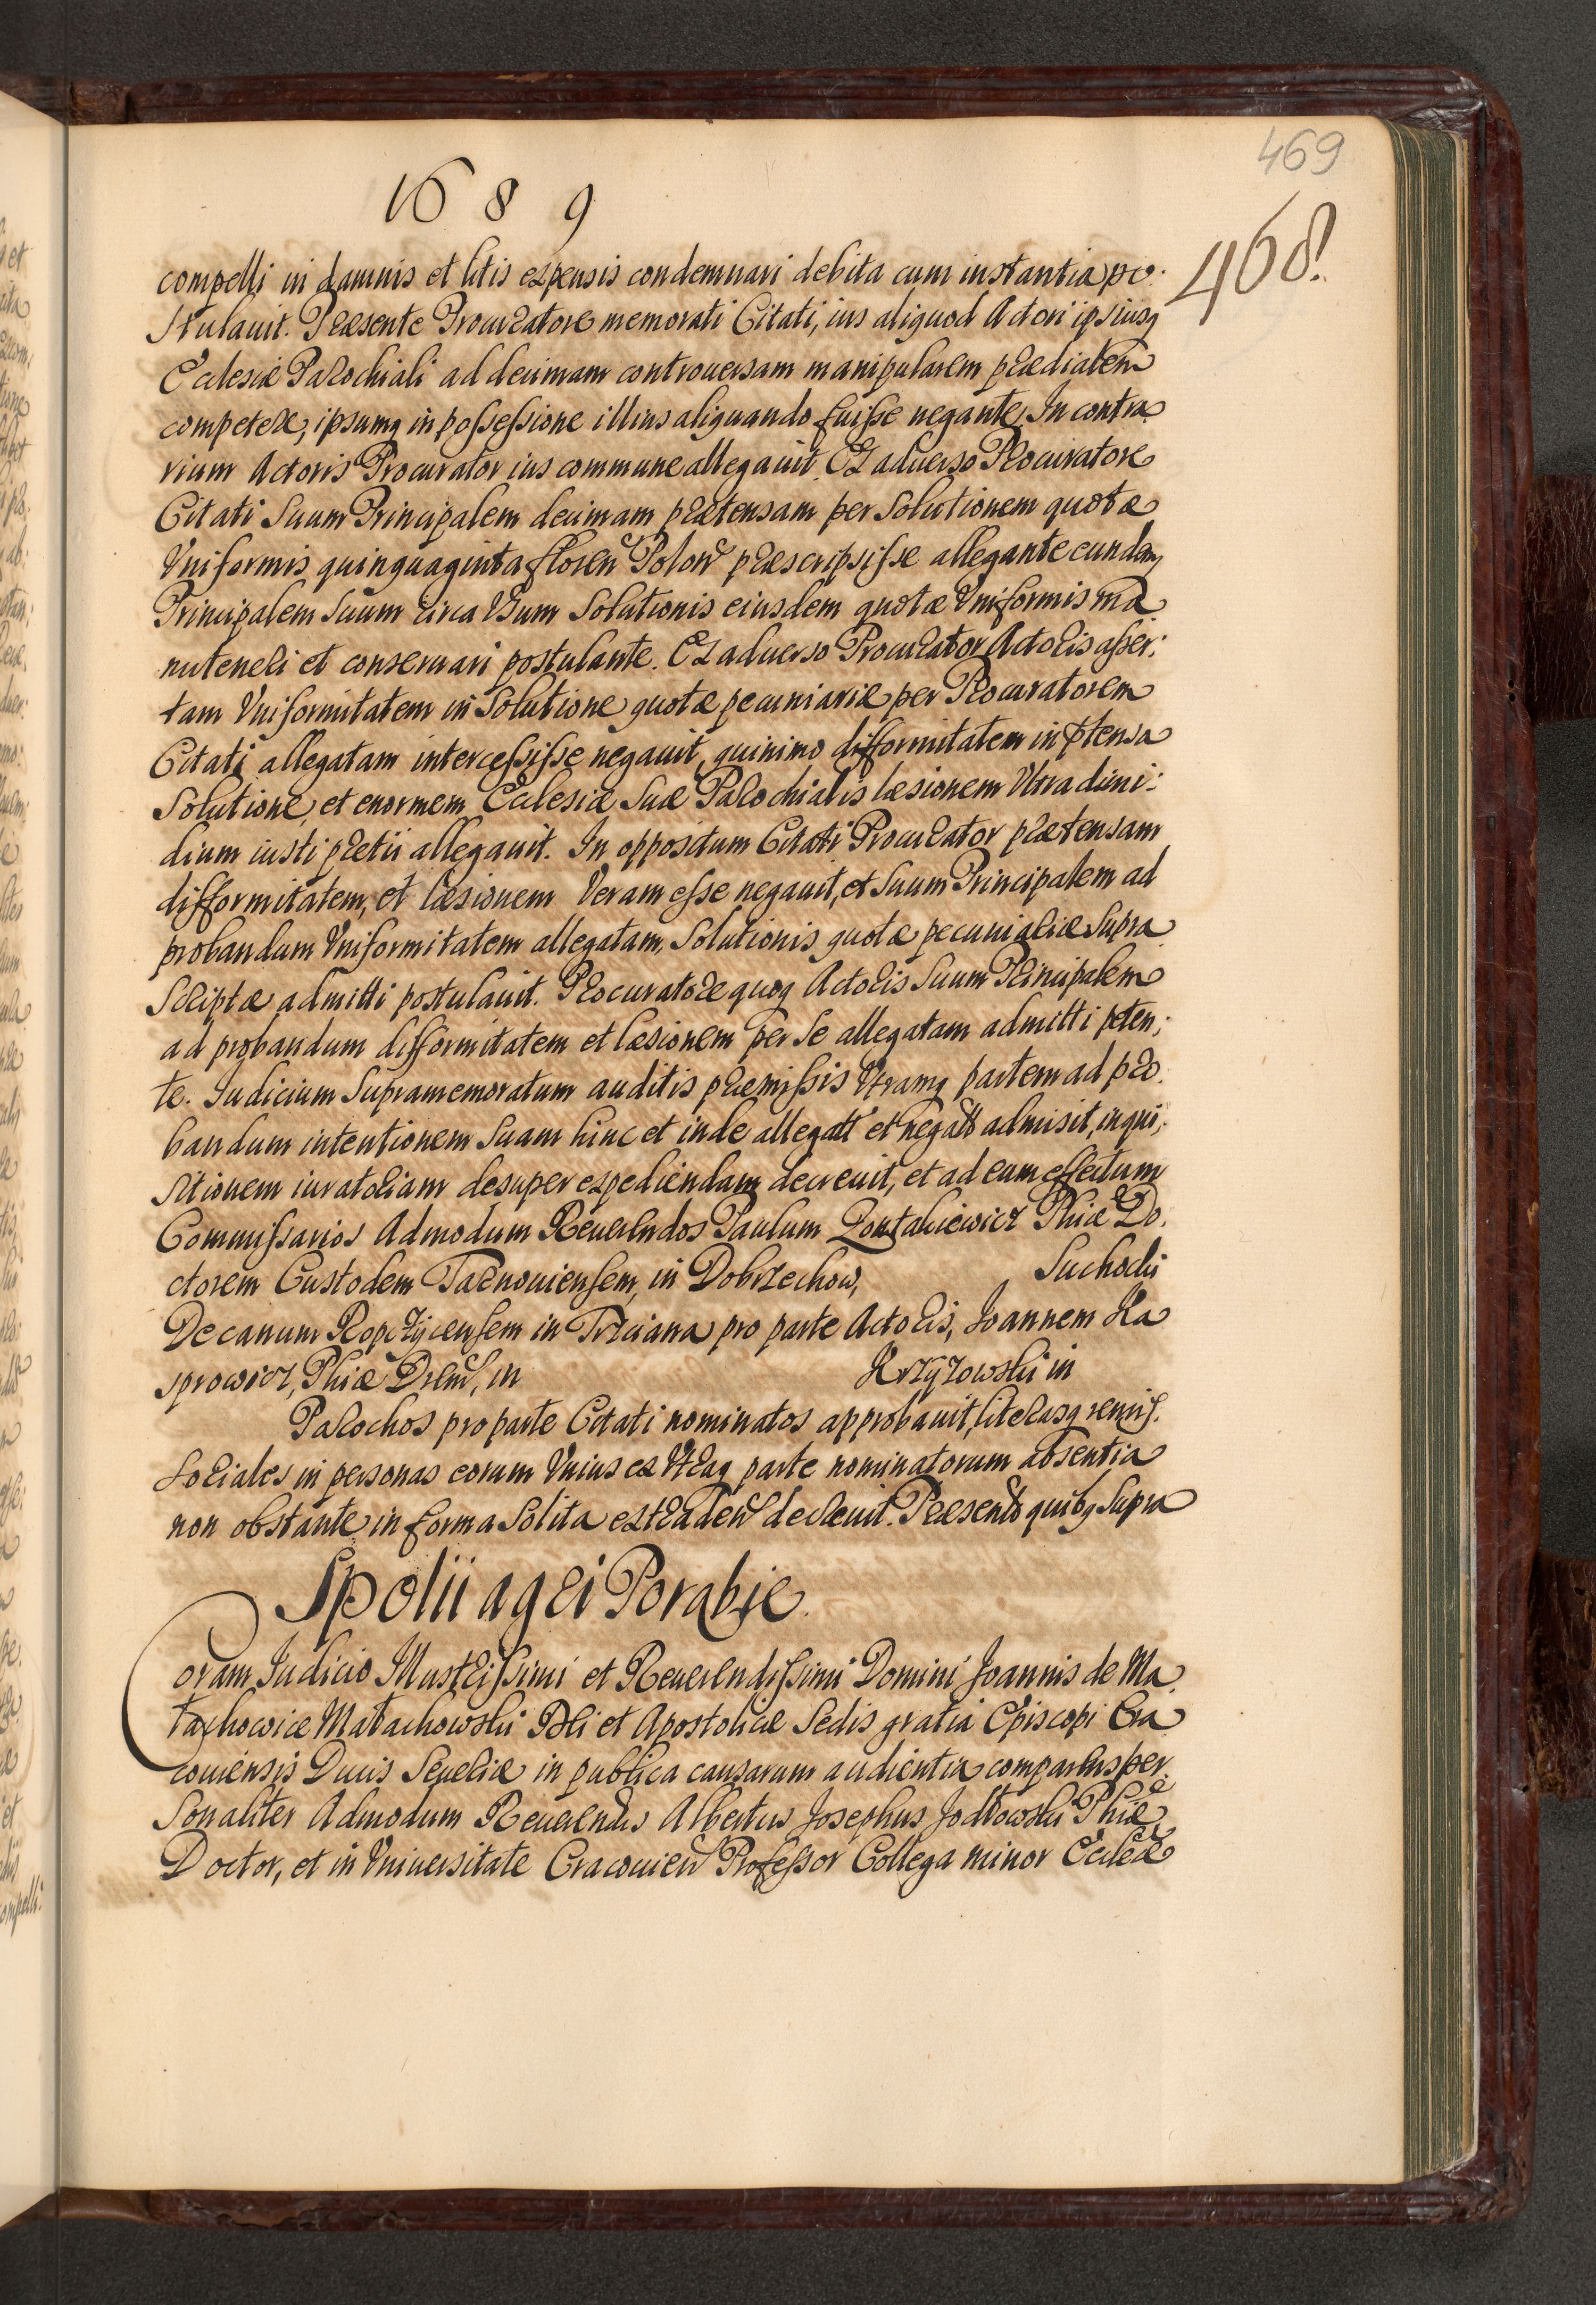 469
1689
468.
compelli in damnis et litis expensis condemnari debita cum instantia po:
stulauit. Præsente Procuratore memorati Citati, ius aliquod Actori ipsiusq
Ecclesiæ Parochiali ad decimam controuersam manipularem prædialem
competere, ipsumq in possessione illius aliquando fuisse negante. In contra
rium Actoris Procurator ius commune allegauit. Ex aduerso Procuratore
Citati Suum Principalem decimam prætensam per Solutionem quotæ
Vniformis quinquaginta floren Polon præscripsisse allegante eundemq
Principalem Suum circa Vsum Solutionis eiusdem quotæ Vniformis ma
nuteneri et conseruari postulante. Ex aduerso Procurator Actoris asser:
tam Vniformitatem in Solutione quotæ pecuniariæ per Procuratorem
Citati allegatam intercessisse negauit, quinimo difformitatem in ptensa
Solutione, et enormem Ecclesiæ Suæ Parochialis læsionem Vltra dimi:
dium iusti pretii allegauit. In oppositum Citati Procurator prætensam
difformitatem, et læsionem Veram esse negauit, et Suum Principalem ad
probandam Vniformitatem allegatam, Solutionis quotæ pecuniariæ Supra
Scriptæ admitti postulauit. Procuratore quoq Actoris Suum Principalem
ad probandum difformitatem et læsionem per Se allegatam admitti peten;
te. Iudicium Supramemoratum auditis præmissis Vtramq partem ad pro:
bandum intentionem Suam hinc et inde allegatt et negatt admisit, inqui;
sitionem iuratoriam desuper expediendam decreuit, et ad eum effectum
Commissarios Admodum Reuerendos Paulum Phiæ Do:
ctorem Custodem Tarnouiensem, in Dobrzechow, Suchocki
Decanum Ropczÿcensem in Trzciana pro parte Actoris, Joannem Ka
sprowicz, Phiæ Drem, in Krzyzowski in
Parochos pro parte Citati nominatos approbauit, literasq remis:
soriales in personas eorum Vnius ex Vtraq parte nominatorum absentia
non obstante in forma Solita extraden decreuit. Præsentt quibq Supra
Spolii agri Porabie.
Coram Iudicio Illustrissimi et Reuerendissimi Domini Joannis de Ma
łachowice Małachowski Dei et Apostolicæ Sedis gratia Episcopi Cra
couiensis Ducis Seueriæ in publica causarum audientia comparens per
Sonaliter Admodum Reuerendus Albertus Josephus Jodłowski Phiæ
Doctor, et in Vniuersitate Cracouien Professor Collega minor Ecclæ